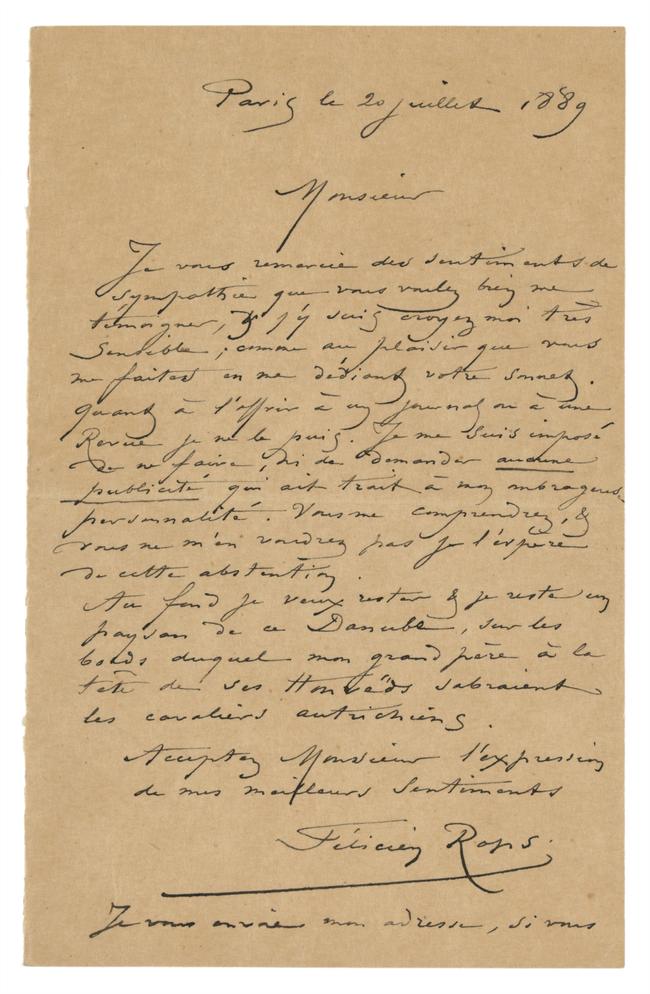 Paris le 20 juillet 1889
Monsieur
Je vous remercie des sentiments de
sympathie que vous voulez bien me
témoigner, & j'y suis croyez moi très
Sensible ; comme au plaisir que vous
me faites en me dédiant votre sonnet.
Quant à l'offrir à un journal ou à une
Revue je ne le puis. Je me suis imposé
de ne faire, ni de demander aucune
publicité qui ait trait à mon ombrageuse
personnalité. Vous me comprendrez, &
vous ne m'en voudrez pas je l'espère
de cette abstention.
Au fond je veux rester & je reste un
paysan de ce Danube, sur les
bords duquel mon grand père à la
tête de ses Honvëds sabraient
les cavaliers autrichiens.
Acceptez Monsieur l'expression
de mes meilleurs Sentiments
Félicien Rops.
Je vous envoie mon adresse, si vous